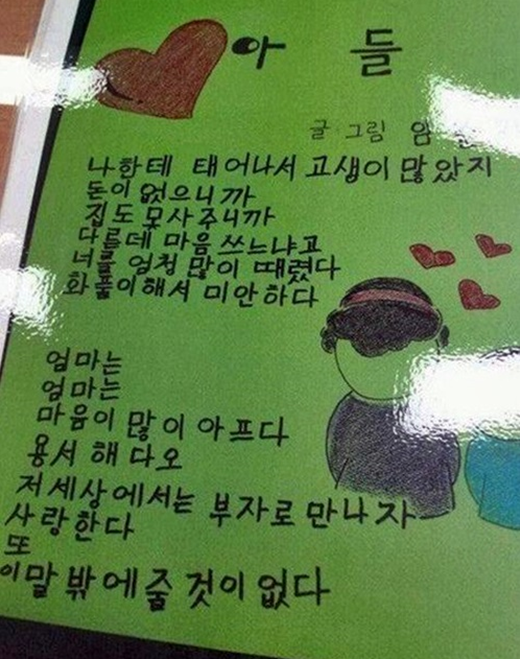 아 들
글 그림 임
나한테 태어나서 고생이 많았지
돈이 없으니까
집도 못사주니까
다른데 마음 쓰느냐고
너를 엄청 많이 때렸다
화풀이해서 미안하다
엄마는
엄마는
마음이 많이 아프다
용서 해 다오
저 세상에서는 부자로 만나자
사랑한다
또
이말 밖에 줄 것이 없다